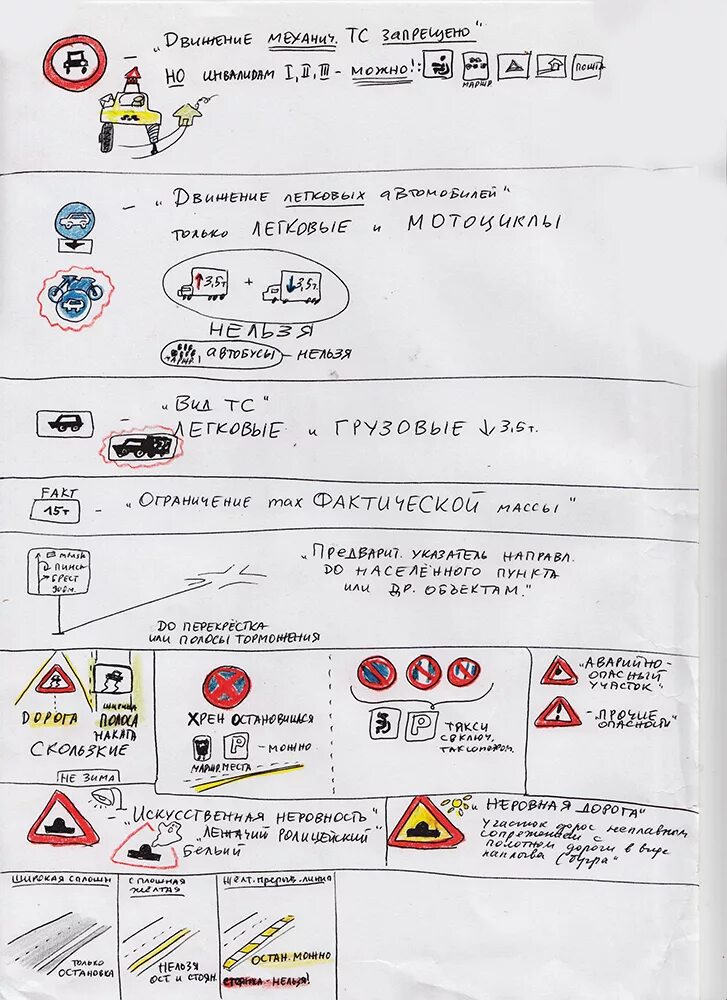 — „Движение механич. ТС запрещено"
НО инвалидам I, II, III - можно!:
МАРШР.
ПОШТА
— „Движение легковых автомобилей"
только ЛЕГКОВЫЕ и МОТОЦИКЛЫ
3,5т + 3,5т
НЕЛЬЗЯ
МАРШР. автобусы — НЕЛЬЗЯ
— „Вид ТС"
ЛЕГКОВЫЕ и ГРУЗОВЫЕ ↓ 3,5т.
FAKT
15т
— „ОГРАНИЧЕНИЕ max ФАКТИЧЕСКОЙ МАССЫ"
МИНСК
ПИНСК
БРЕСТ
„ПРЕДВАРИТ. УКАЗАТЕЛЬ НАПРАВЛ.
ДО НАСЕЛЁННОГО ПУНКТА
ИЛИ ДР. ОБЪЕКТАМ."
ДО ПЕРЕКРЁСТКА
ИЛИ ПОЛОСЫ ТОРМОЖЕНИЯ
ДОРОГА
ШИРИНА
ПОЛОСА
НАКАТА
СКОЛЬЗКИЕ
НЕ ЗИМА
ХРЕН ОСТАНОВИШЬСЯ
P — МОЖНО
МАРШР. МЕСТА
P ТАКСИ
С ВКЛЮЧ.
ТАКСОМЕТРОМ.
„АВАРИЙНО-
ОПАСНЫЙ
УЧАСТОК"
- „ПРОЧИЕ
ОПАСНОСТИ"
— „ИСКУССТВЕННАЯ НЕРОВНОСТЬ"
„ЛЕЖАЧИЙ ПОЛИЦЕЙСКИЙ"
БЕЛЫЙ
„НЕРОВНАЯ ДОРОГА"
Участок дорог с неплавным
сопряжением с
полотном дороги в виде
наплыва (бугра"
ШИРОКАЯ СПЛОШН
ТОЛЬКО
ОСТАНОВКА
СПЛОШНАЯ
ЖЁЛТАЯ
НЕЛЬЗЯ
ОСТ И СТОЯН.
ЖЁЛТ. ПРЕРЫВ. ЛИНИЯ
ОСТАН. МОЖНО
СТОЯНКА - НЕЛЬЗЯ!